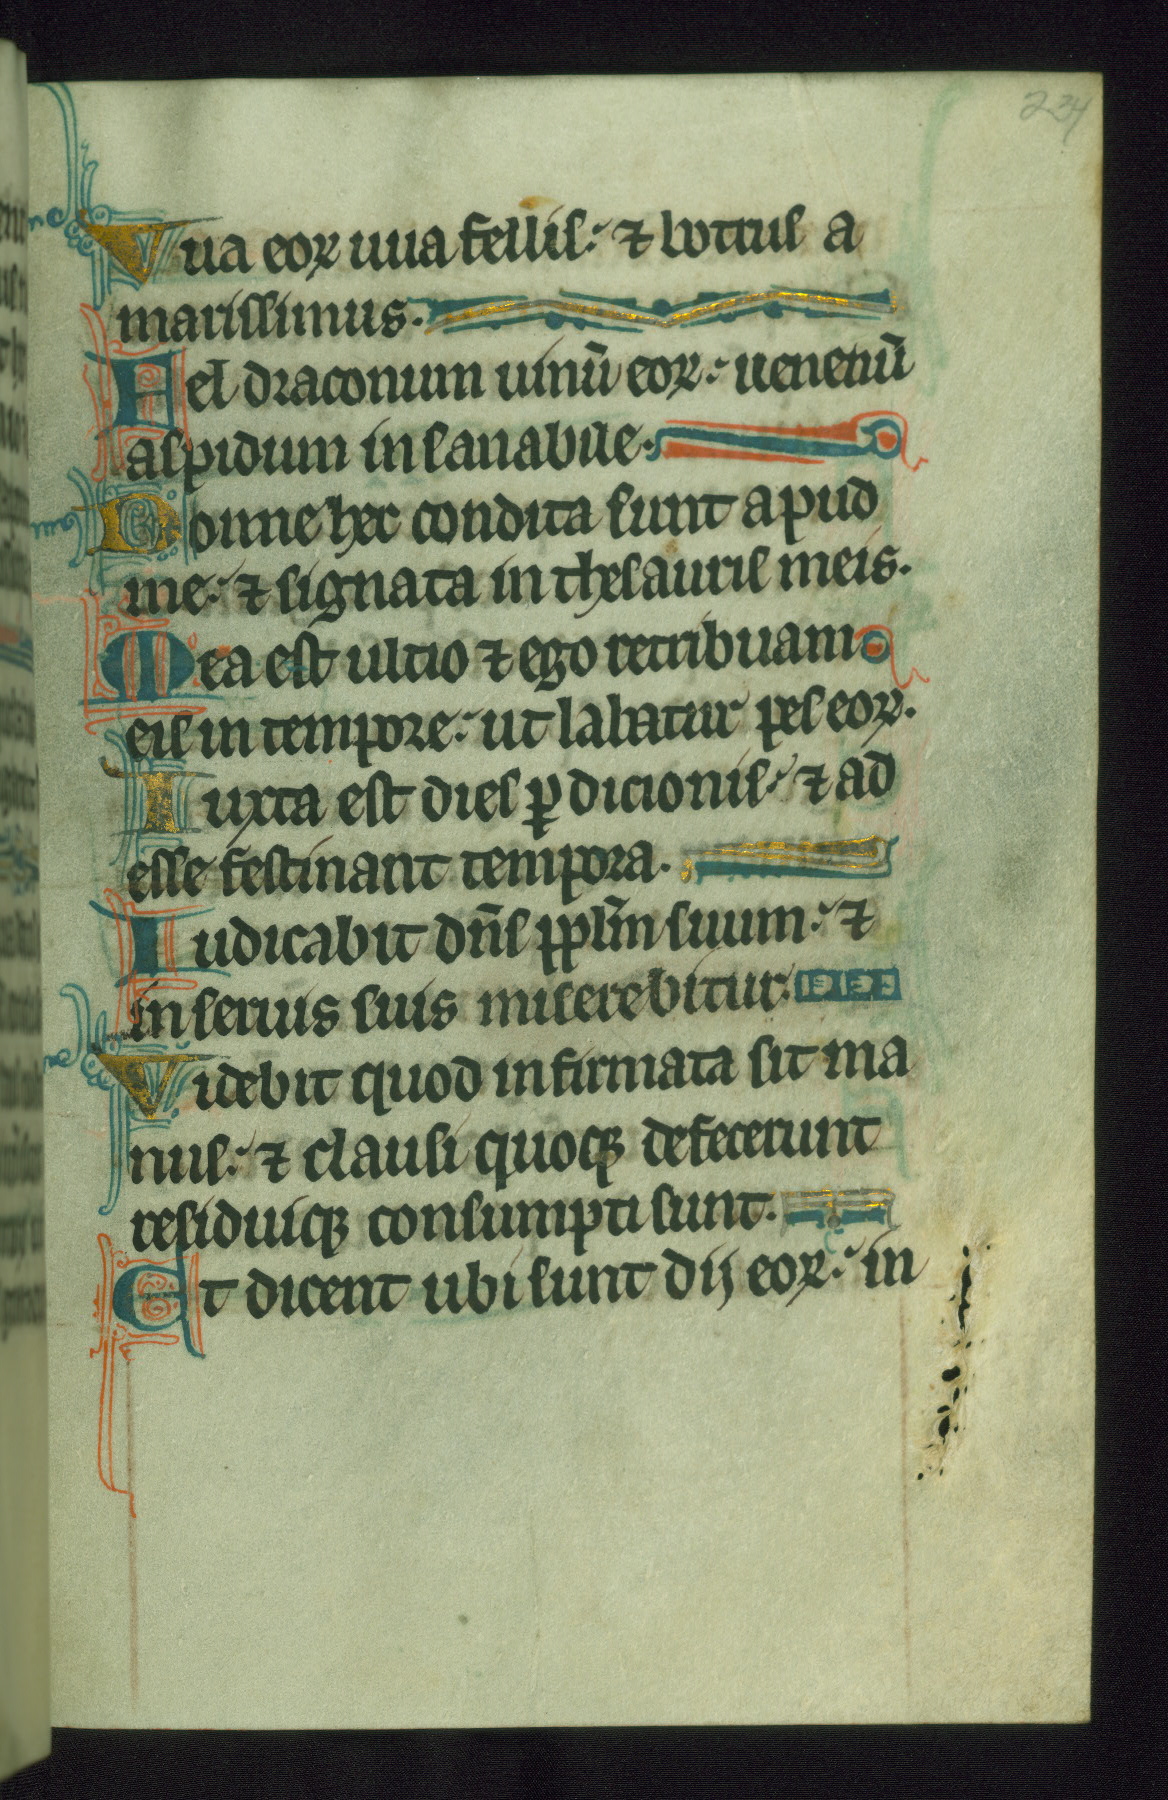 234
Vua eoꝝ uua fellis: ⁊ botrus a
marissimus.
Fel draconum uinū eoꝝ: uenenū
aspidum insanabile.
Nonne hec condita sunt apud
me: ⁊ signata in thesauris meis.
Mea est ultio ⁊ ego retribuam
eis in tempore: ut labatur pes eoꝝ.
Iuxta est dies ꝑdicionis: ⁊ ad
esse festinant tempora.
Iudicabit dn̄s pplm̄ suum: ⁊
in seruis suis miserebitur.
Videbit quod infirmata sit ma
nus: ⁊ clausi quoqꝫ defecerunt
residuiqꝫ consumpti sunt.
Et dicent ubi sunt dij eoꝝ: in